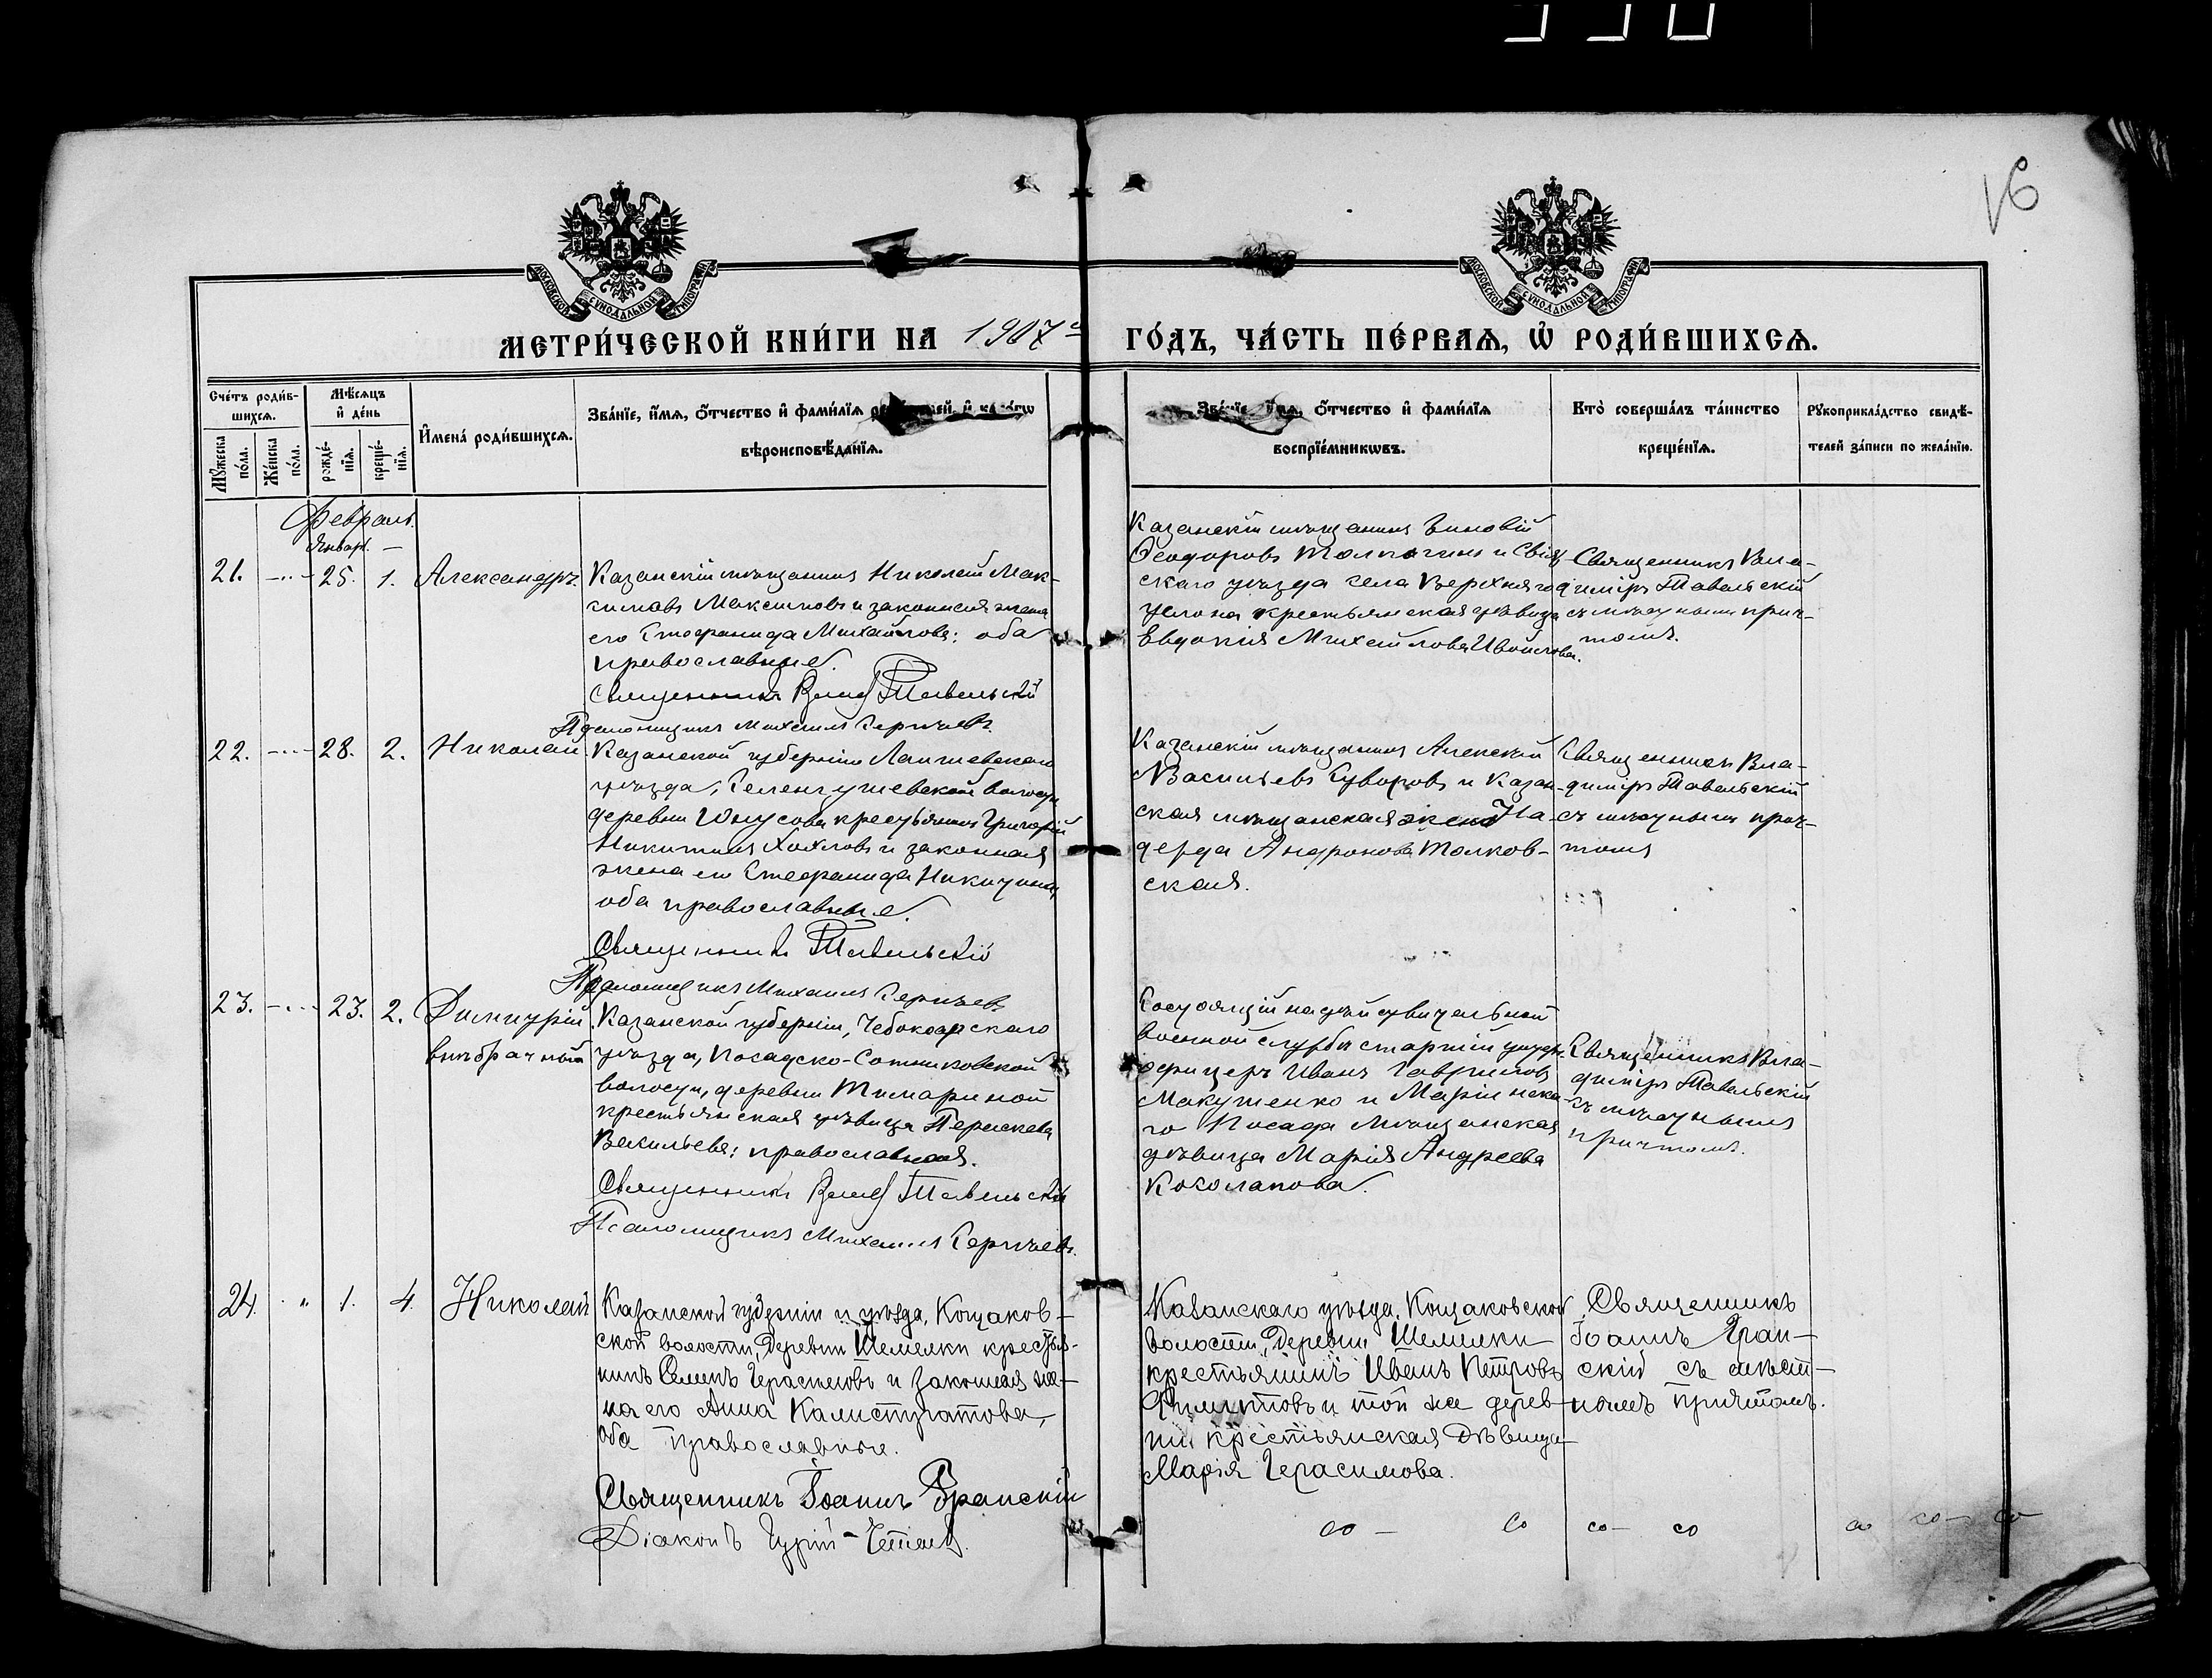 16
МОСКОВСКОЙ СѴНОДАЛЬНОЙ ТИПОГРАФІИ
МОСКОВСКОЙ СѴНОДАЛЬНОЙ ТИПОГРАФІИ
МЕТРИ́ЧЕСКОЙ КНИ́ГИ НА 1907 ГО́ДЪ, ЧА́СТЬ ПЕ́РВАѦ, Ѡ҆ РОДИ́ВШИХСѦ.
Сче́тъ роди́в-
шихсѧ.
Мѣ́сѧцъ
и҆ де́нь
Мꙋ́жеска
по́ла.
Же́нска
по́ла.
рожде́-
нїѧ.
креще́-
нїѧ.
И҆мена̀ роди́вшихсѧ.
Зва́нїе, и҆́мѧ, ѻ҆́тчество и҆ фами́лїѧ
вѣроисповѣ́данїѧ.
Зва́нїе, и҆́мѧ, ѻ҆́тчество и҆ фами́лїѧ
воспрїе́мникѡвъ.
Кто̀ соверша́лъ та́инство
креще́нїѧ.
Рꙋкоприкла́дство свидѣ́-
телей за́писи по жела́нїю.
Февраль.
Январ.
21. 25. 1. Александръ
Казанскій мѣщанинъ Николай Мак-
симовъ Максимовъ и законная жена
его Стефанида Михайлова; оба
православные.
Священникъ Влад Тавельскій
Псаломщикъ Михаилъ
Казанскій мѣщанинъ Зиновій
Ѳеодоровъ и Свіяж-
скаго уѣзда села Верхняго
Услона крестьянская дѣвица
Евдокія Михайлова
Священникъ Вла-
диміръ Тавельскій
съ мѣстнымъ прич-
томъ.
22. 28. 2. Николай
Казанской губерніи Лаишевскаго
уѣзда, волости
деревни крестьянинъ Григорій
Никитинъ Хохловъ и законная
жена его Стефанида Никитина,
оба православные.
Священникъ Тавельскій
Псаломщикъ Михаилъ
Казанскій мѣщанинъ Алексѣй
Васильевъ Суворовъ и Казан-
ская мѣщанская жена На-
дежда Андронова Толков-
ская.
Священникъ Вла-
диміръ Тавельскій
съ мѣстнымъ прич-
томъ
23. 23. 2. Димитрій
внѣбрачный
Казанской губерніи, Чебоксарскаго
уѣзда, Посадско-Сотниковской
волости, деревни
крестьянская дѣвица Параскева
Васильева; православная.
Священникъ Влад Тавельскій
Псаломщикъ Михаилъ
Состоящій на дѣйствительной
военной службѣ старшій унтер-
офицеръ Иванъ Гавриловъ
Макушенко и Маріинска-
го Посада мѣщанская
дѣвица Марія Андреева
Косолапова.
Священникъ Вла-
диміръ Тавельскій
съ мѣстнымъ
причтомъ.
24. 1. 4. Николай
Казанской губерніи и уѣзда, Кощаков-
ской волости, деревни Шемелки крестья-
нинъ Семенъ Герасимовъ и законная же-
на его Анна Калистратова,
оба православные.
Священникъ Іоаннъ Гранскій
Діаконъ Гурій
Казанскаго уѣзда, Кощаковской
волости, деревни Шемелки
крестьянинъ Иванъ Петровъ
Филиповъ и той же дерев-
ни крестьянская дѣвица
Марія Герасимова.
Священникъ
Іоаннъ Гран-
скій съ мѣст-
нымъ причтомъ.